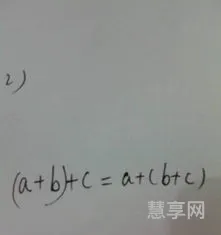 2)
(a+b)+c=a+(b+c)
慧享网